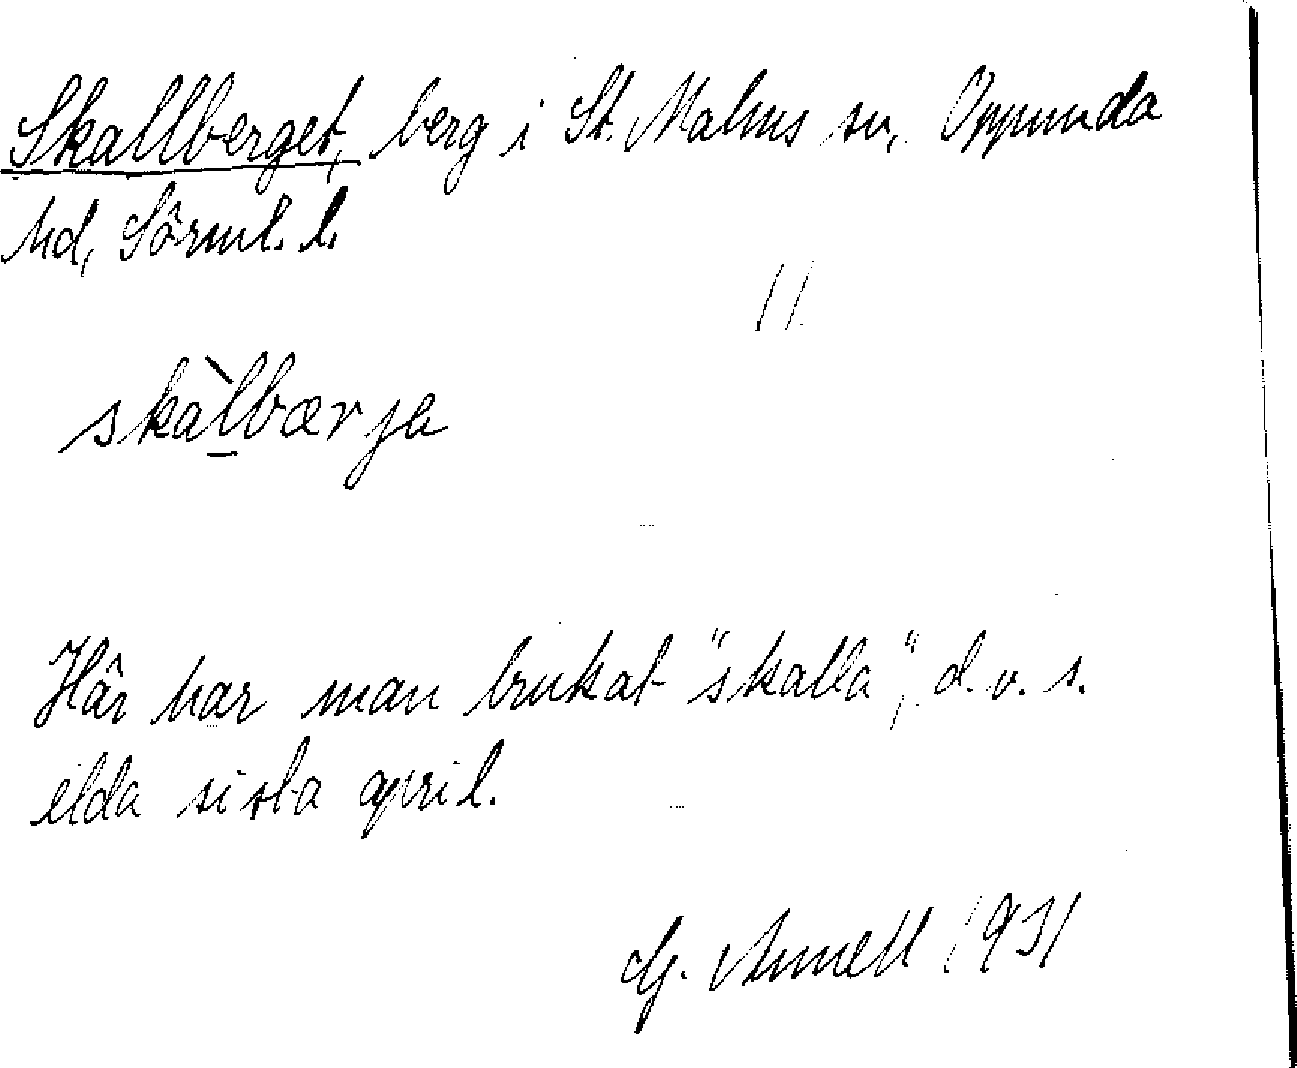 Skallberget, berg i St. Malms sn, Oppunda
hd, Sörml. l.
11
skàlbærja
Här har man brukat "skalla", d.v.s.
elda sista april.
G. Annell 1931